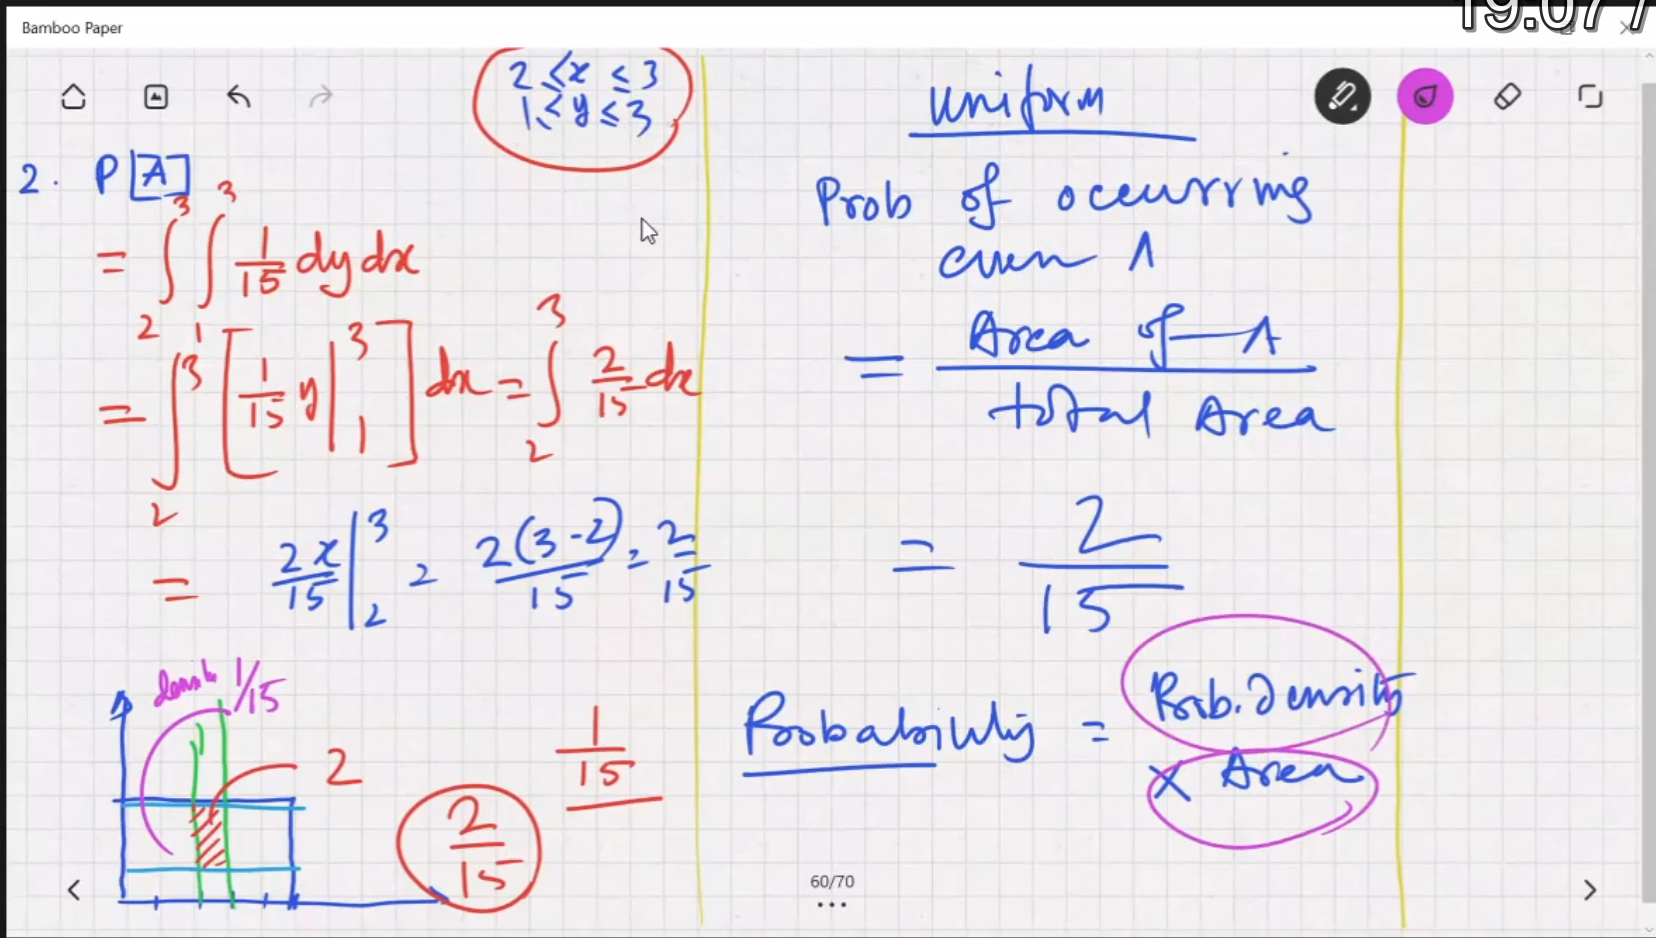 19:077
Bamboo Paper
2 ≤ x ≤ 3
1 ≤ y ≤ 3
2. P[A]
= ∫₂³ ∫₁³ 1/15 dy dx
= ∫₂³ [1/15 y |₁³] dx = ∫₂³ 2/15 dx
= 2x/15 |₂³ = 2(3-2)/15 = 2/15
density 1/15
2
1/15
2/15
Uniform
Prob of ocurring
even A
= Area of A / total Area
= 2/15
Probability = Prob. Density
x Area
60/70